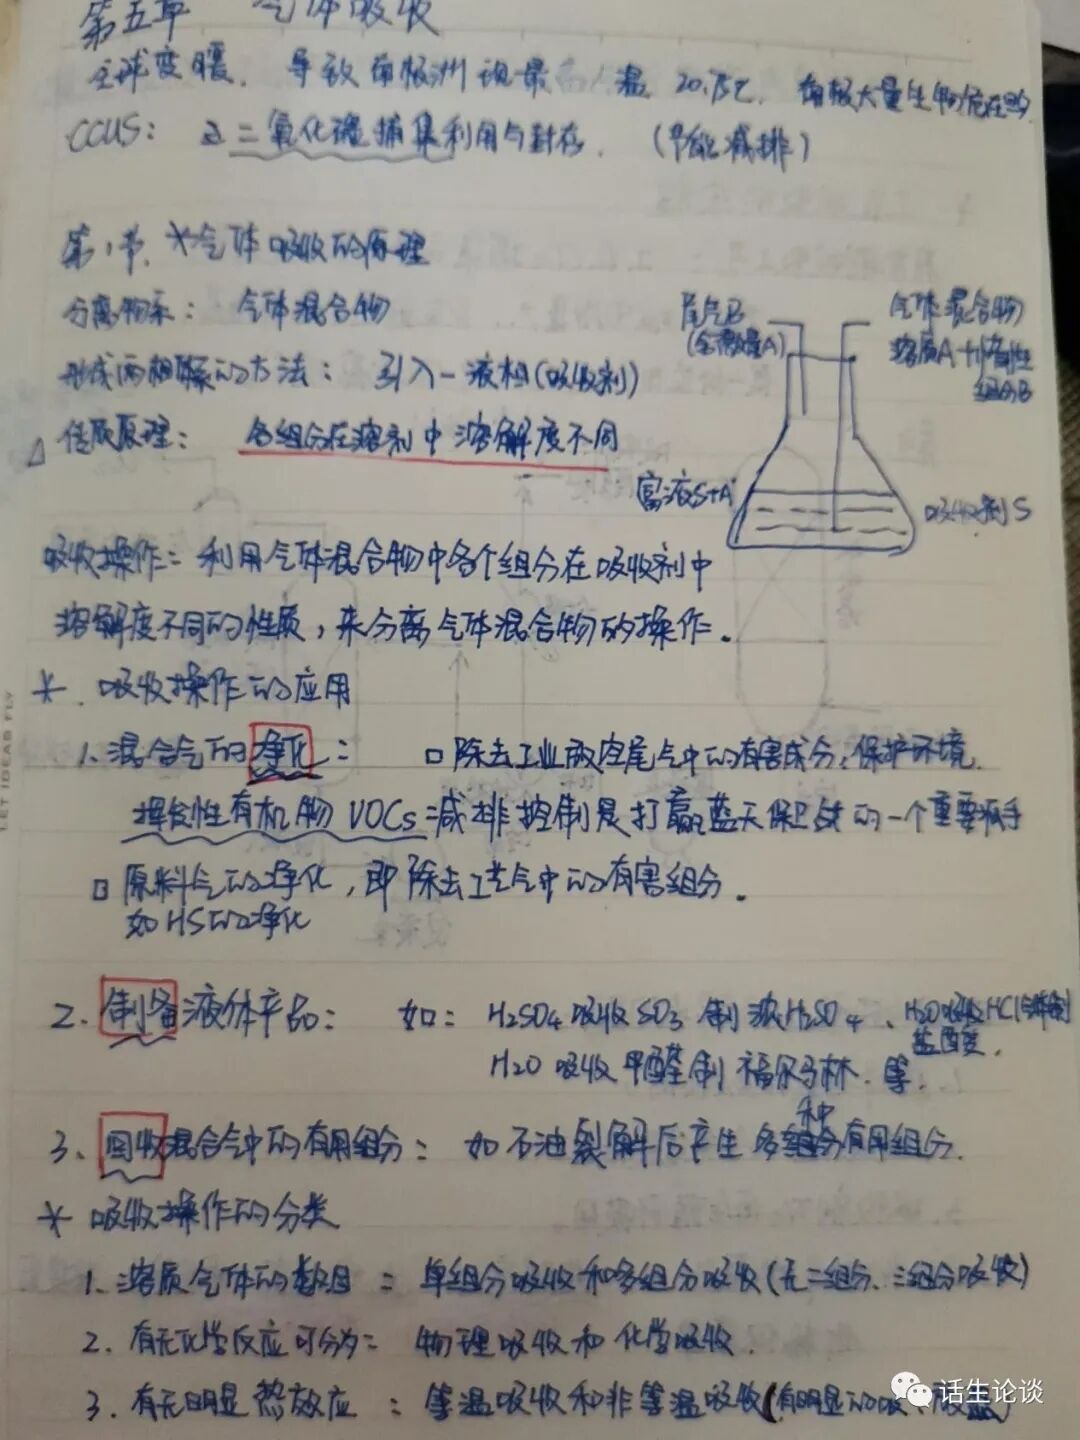 第五章 气体吸收
全球变暖. 导致南极洲现最高温 20.75℃. 南极大量生物危在
CCUS: 二氧化碳捕集利用与封存. (节能减排)
第1节. *气体吸收的原理
分离物系: 气体混合物
形成两相体系的方法: 引入一液相(吸收剂)
△ 传质原理: 各组分在溶剂中溶解度不同
尾气B
(含微量A)
气体混合物
溶质A+惰性
组分B
富液S+A
吸收剂S
吸收操作: 利用气体混合物中各个组分在吸收剂中
溶解度不同的性质, 来分离气体混合物的操作.
* . 吸收操作的应用
1. 混合气的净化: □ 除去工业放空尾气中的有害成分, 保护环境.
挥发性有机物VOCs减排控制是打赢蓝天保卫战的一个重要抓手
□ 原料气的净化, 即除去工艺气中的有害组分.
如HS的净化
2. 制备液体产品: 如: H2SO4吸收SO3 制浓H2SO4、H2O吸收HCl制
盐酸.
H2O 吸收甲醛制福尔马林. 等.
3. 回收混合气中的有用组分: 如石油裂解后产生多种有用组分.
* 吸收操作的分类
1. 溶质气体的数目: 单组分吸收和多组分吸收(无二组分、三组分吸收)
2. 有无化学反应可分为: 物理吸收和化学吸收.
3. 有无明显热效应: 等温吸收和非等温吸收(有明显的吸
话生论谈
LET IDEAS FLY